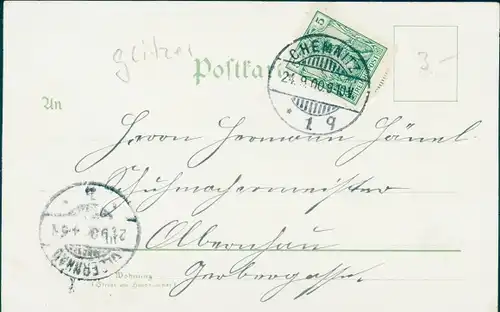 glitzer
Postkarte
5
CHEMNITZ
24.9.00.9-10V.
* 1 q
3.-
An
Herrn Hermann Hänel
Schuhmachermeister
Olbernhau
Gerbergasse.
OLBERNHAU
Wohnung
(Straße und Hausnummer)